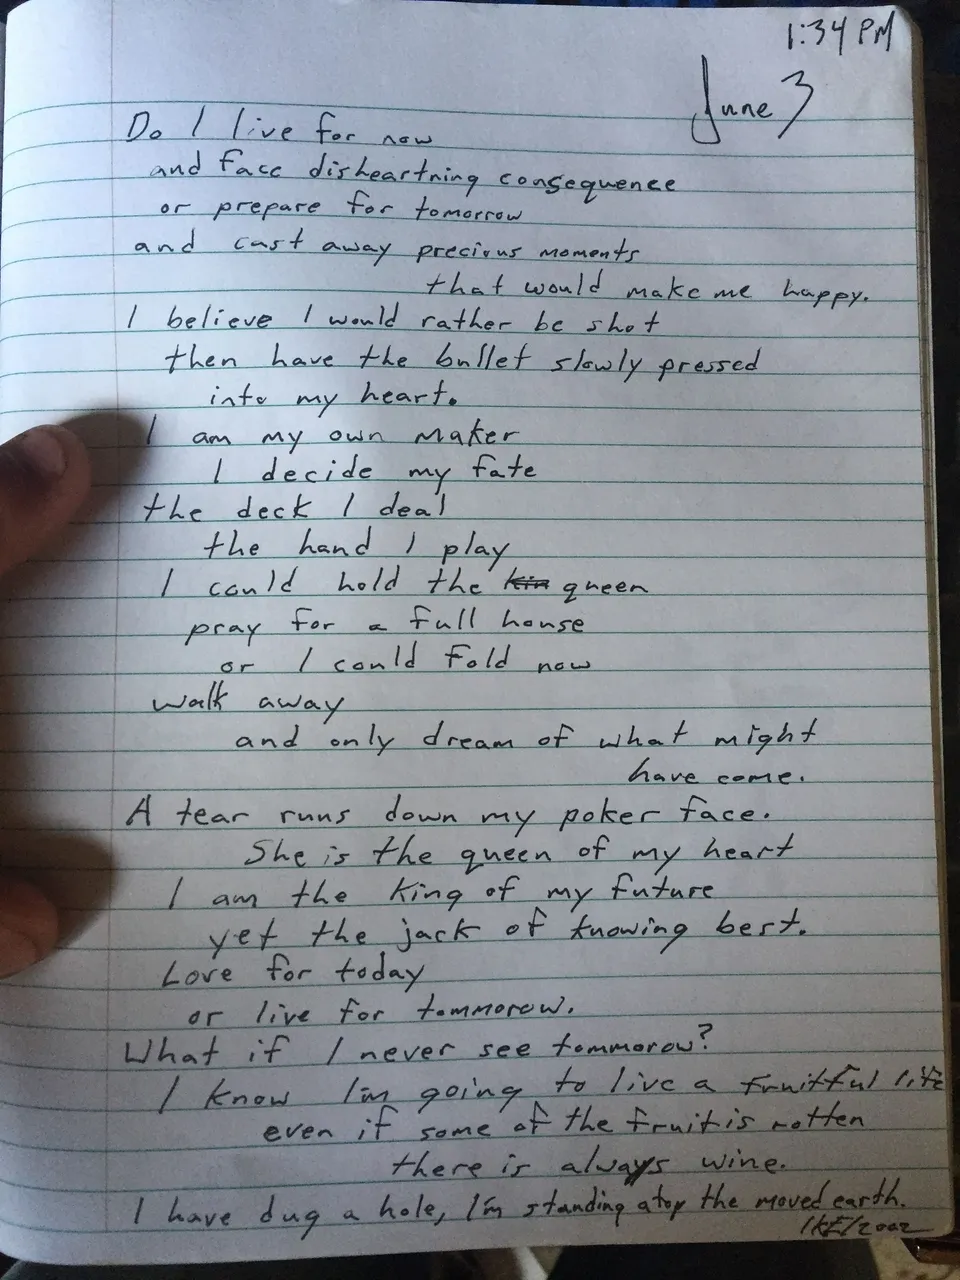 1:34 PM
June 3
Do I live for now
and face disheartning consequence
or prepare for tomorrow
and cast away precious moments
that would make me happy.
I believe I would rather be shot
then have the bullet slowly pressed
into my heart.
I am my own maker
I decide my fate
the deck I deal
the hand I play
I could hold the kin queen
pray for a full house
or I could fold now
walk away
and only dream of what might
have come.
A tear runs down my poker face.
She is the queen of my heart
I am the king of my future
yet the jack of knowing best.
Love for today
or live for tommorow.
What if I never see tommorow?
I know I'm going to live a fruitful life
even if some of the fruit is rotten
there is always wine.
I have dug a hole, I'm standing atop the moved earth.
IKE/2002